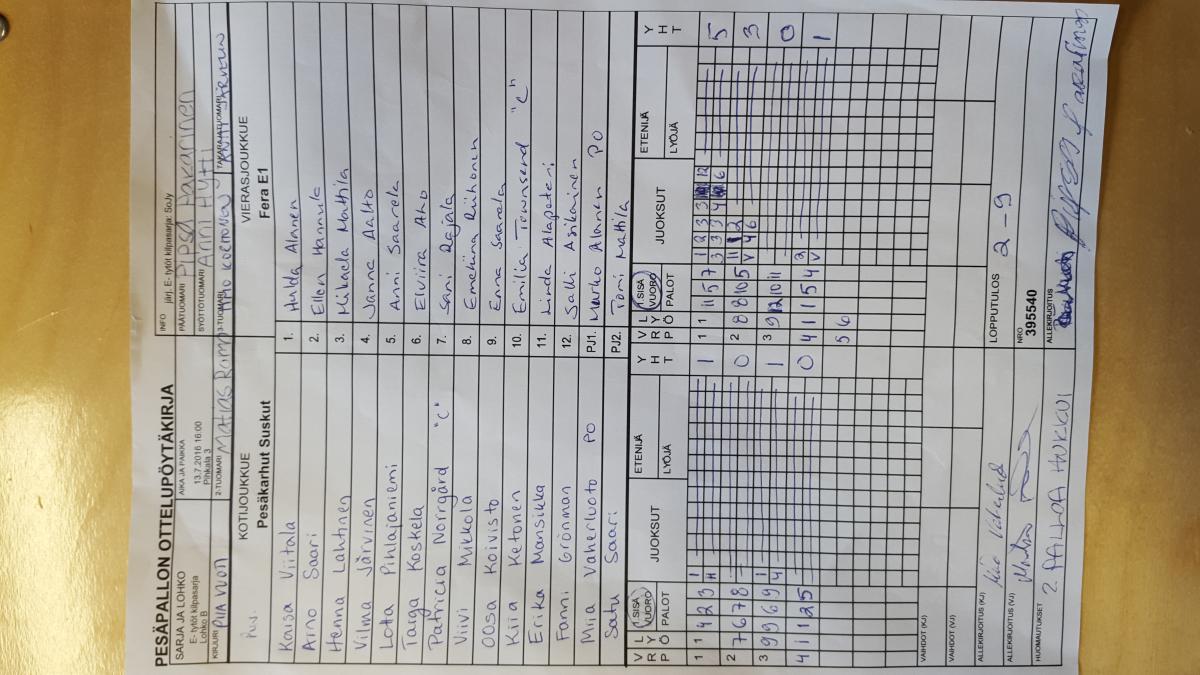 PESÄPALLON OTTELUPÖYTÄKIRJA
SARJA JA LOHKO
E- tytöt kilpasarja
Lohko B
AIKA JA PAIKKA
13.7.2016 16:00
Pinkala 3
INFO järj. E- tytöt kilpasarja: SoJy
PÄÄTUOMARI PIPSA
SYÖTTÖTUOMARI ANNI HYTTI
KIRJURI PIIA
2-TUOMARI Matias
3-TUOMARI
TAKARAJATUOMARI
KOTIJOUKKUE
Pesäkarhut Suskut
VIERASJOUKKUE
Fera E1
Kaisa Viitala 1. Hulda Alanen
Arno Saari 2. Ellen Hannula
Henna Lahtinen 3. Mikaela Mattila
Vilma Järvinen 4. Janna Aalto
Lotta Pihlajaniemi 5. Anni Saarela
Taiga Koskela 6. Elviira Aho
Patricia Norrgård "C" 7. Sani Rajala
Viivi Mikkola 8. Emeliina Riihonen
Oosa Koivisto 9. Enna Saarela
Kiia Ketonen 10. Emilia Townsend "C"
Erika Mansikka 11. Linda Alapeteri
Fanni Grönman 12. Salli Asikainen
Miia Vaherluoto PO PJ1. Marko Alanen PO
Satu Saari PJ2. Tomi Mattila
V R P L Y Ö 1. SISÄ VUORO PALOT JUOKSUT ETENIJÄ LYÖJÄ Y H T V R P L Y Ö 1. SISÄ VUORO PALOT JUOKSUT ETENIJÄ LYÖJÄ Y H T
1 1 4 2 3 1 11 1 1 1 11 5 7 1 2 3 3 12 3 3 3 4 6 5
2 7 6 7 8 0 2 8 8 10 5 11 1 2 V 4 6 3
3 9 9 6 9 1 4 1 3 9 12 10 11 0
4 1 1 2 5 0 4 1 1 5 4 2 V 1
5 6
VAIHDOT (KJ)
VAIHDOT (VJ)
LOPPUTULOS 2 - 9
ALLEKIRJOITUS (KJ)
ALLEKIRJOITUS (VJ)
NRO
395540
ALLEKIRJOITUS
HUOMAUTUKSET 2. PALLOA HUKKUI